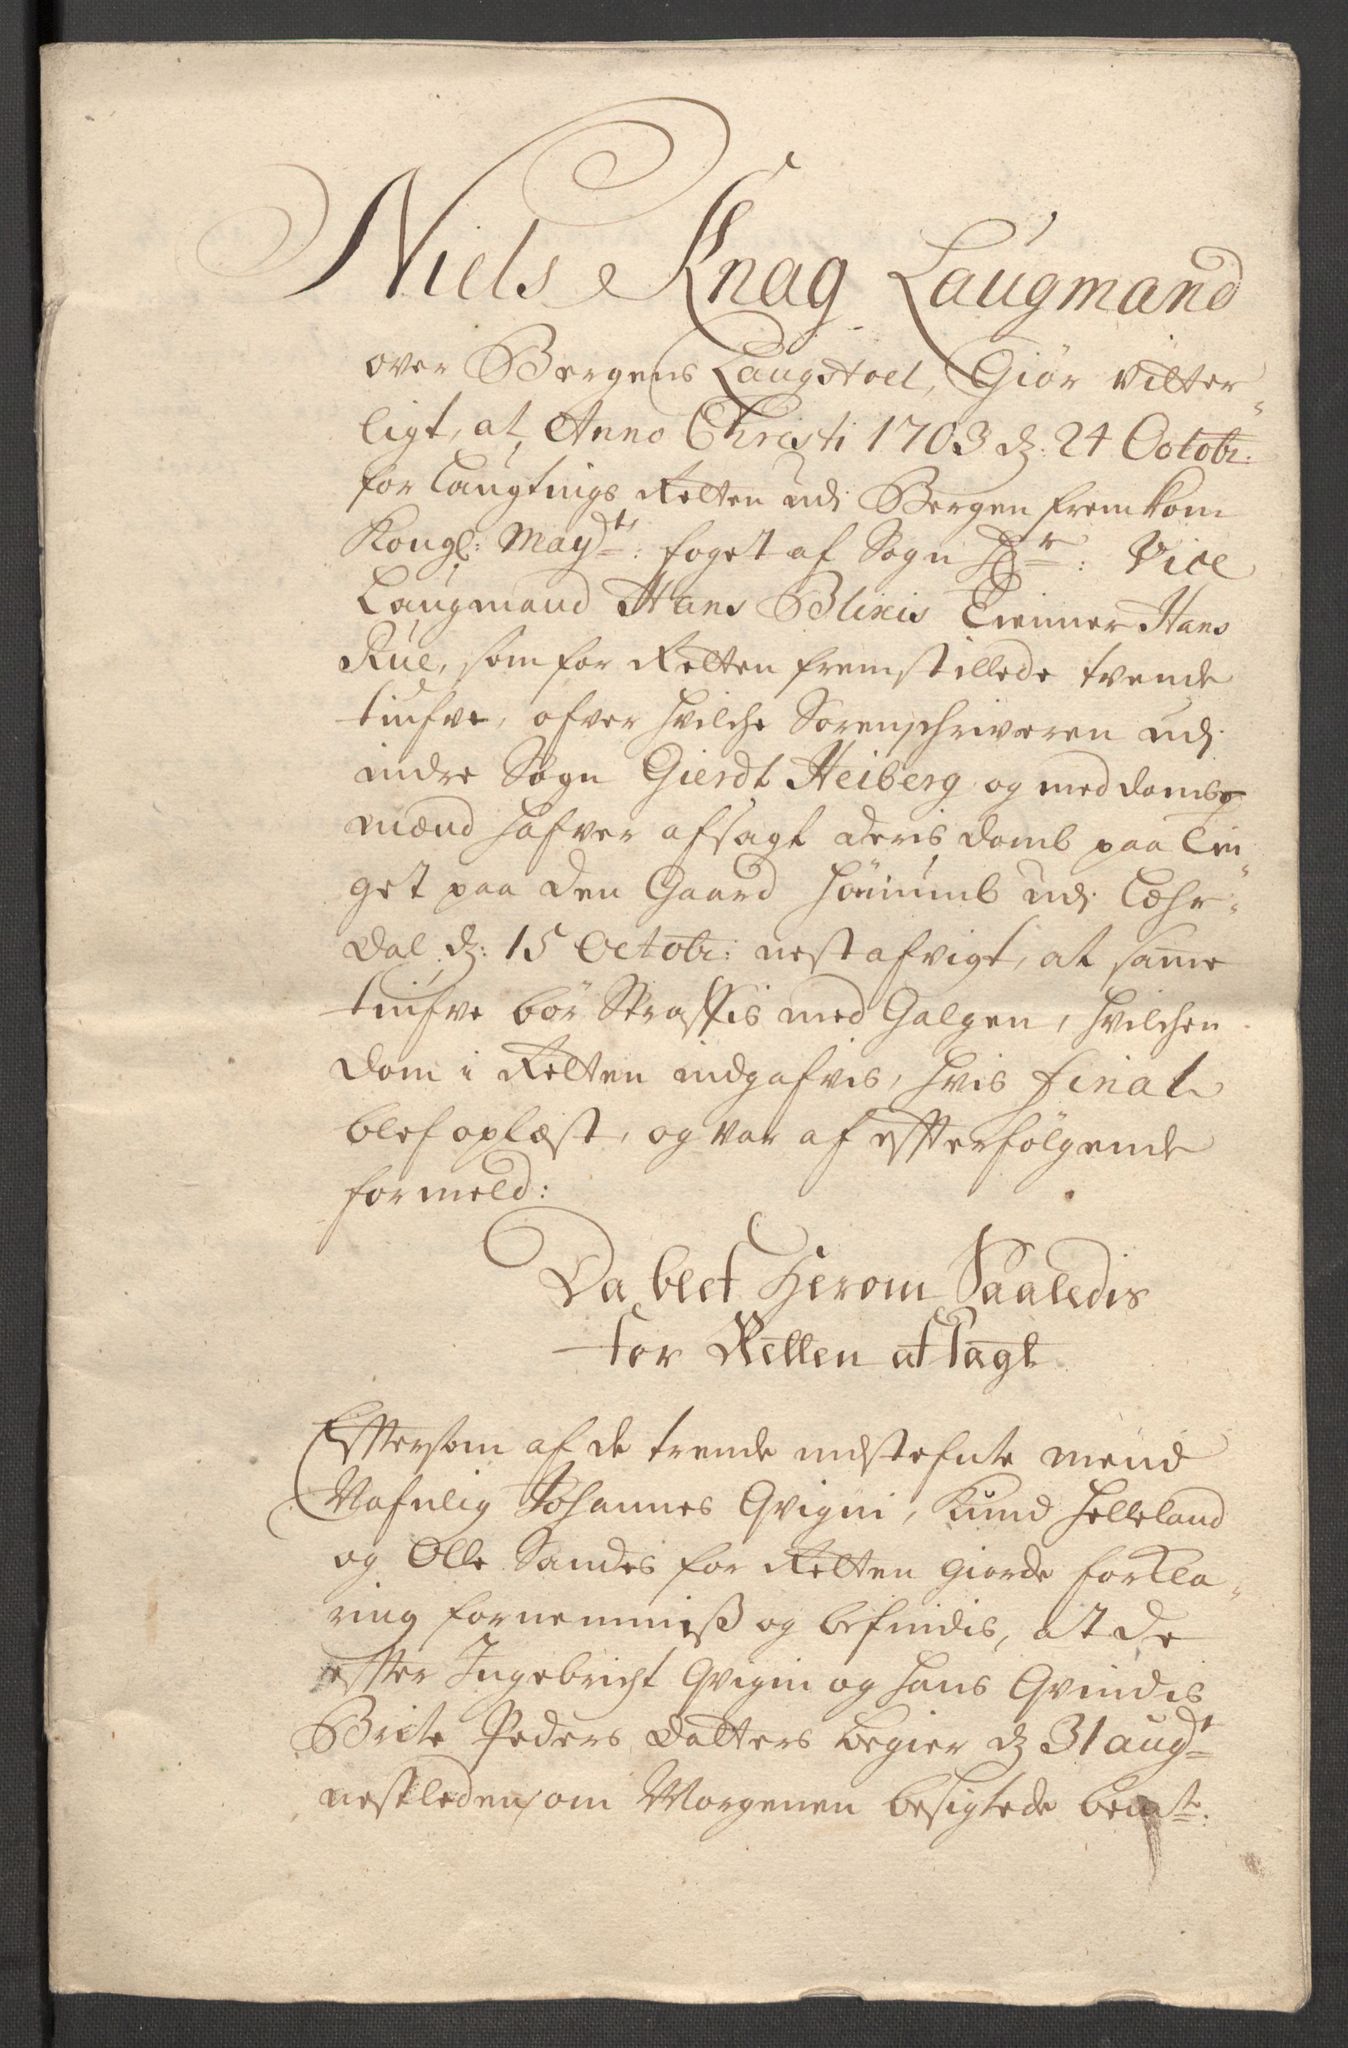 Niels Knag Laugmand
over Bergens Laugstoel, Giör vitter-
ligt, at Anno Christi 1703 d: 24 Octobr:
for Laugtings Retten udi Bergen fremkom
Kongl: Mayts: foget af Sogn Hr: Vice
Laugmand Hans Blixis Tienner Hans
Rue, som for Retten fremstillede tvende
tiufve, ofver hvilche Sorenschriveren udi
indre Sogn Gierdt Heiberg og meddombs
mænd hafver afsagt deris domb paa Tin-
get paa den Gaard udi Læhr-
dal d: 15 Octobr: nest afvigt, at same
tiufve bör Straffis med Galgen, hvilchen
dom i Retten indgafvis, hvis final
blef oplæst, og var af efterfölgende
formeld:
Da blef Herom Saaledis
for Retten afsagt
Eftersom af de trende indstefnte mend
Nafnlig Johannes Qvigni, Knud Helleland
og Olle Sandes for Retten giorde forkla-
ring fornemmis og befindis, at de
efter Ingebricht Qvigni og hans Qvindis
Brite Peders datters begier d 31 augt
nestleden om Morgenen besigtede bemte: